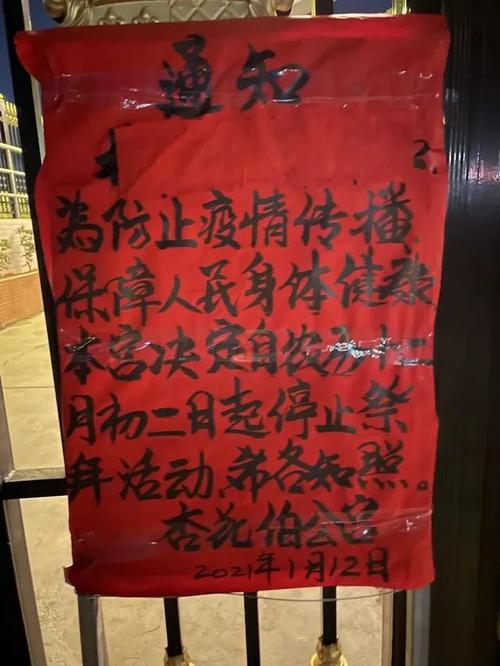 通知
為防止疫情传播
保障人民身体健康
本宫决定自农历十二
月初二日起停止祭
拜活动,希各知照。
杏花伯公宫
2021年1月12日